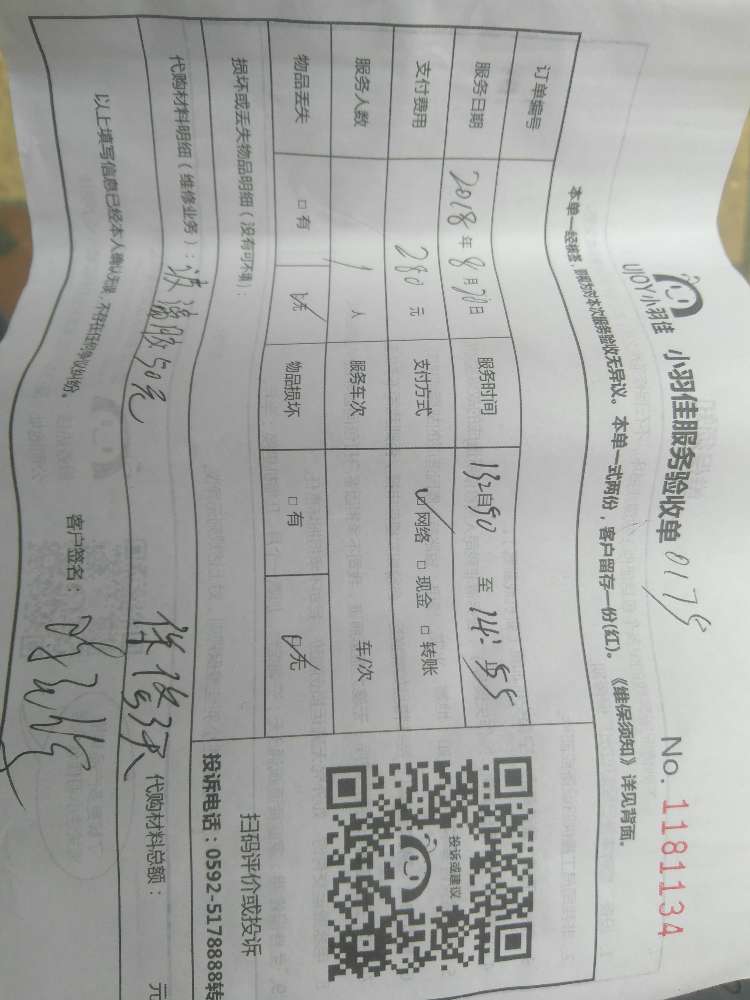 UJOY小羽佳 小羽佳服务验收单 0175 No. 1181134
本单一经接签，即视为对本次服务验收无异议。本单一式两份，客户留存一份(红)。《维保须知》详见背面。
订单编号
服务日期 2018年8月20日 服务时间 至 14:55
支付费用 280元 支付方式 ☑网络 □现金 □转账
服务人数 1人 服务车次 车/次
物品丢失 □有 ☑无 物品损坏 □有 ☑无
损坏或丢失物品明细（没有可不填）：
代购材料明细（维修业务）：玻璃胶50元 代购材料总额： 元
以上填写信息已经本人确认无误，不存在任何争议纠纷。 客户签名：
投诉或建议
扫码评价或投诉
投诉电话：0592-5178888转